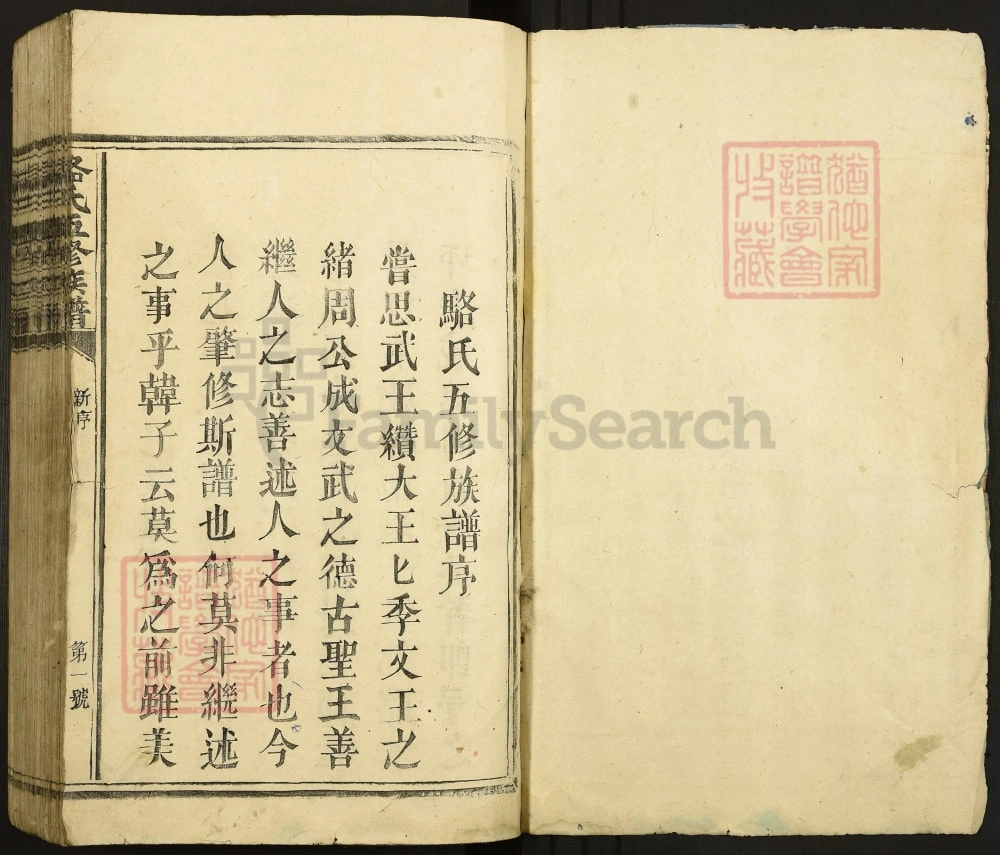 駱氏五修族譜序
嘗思武王纘大王匕季文王之
緒周公成文武之德古聖王善
繼人之志善述人之事者也今
人之肇修斯譜也何莫非繼述
之事乎韓子云莫爲之前雖美
駱氏五修族譜
新序
第一號
FamilySearch
譜學會
收藏